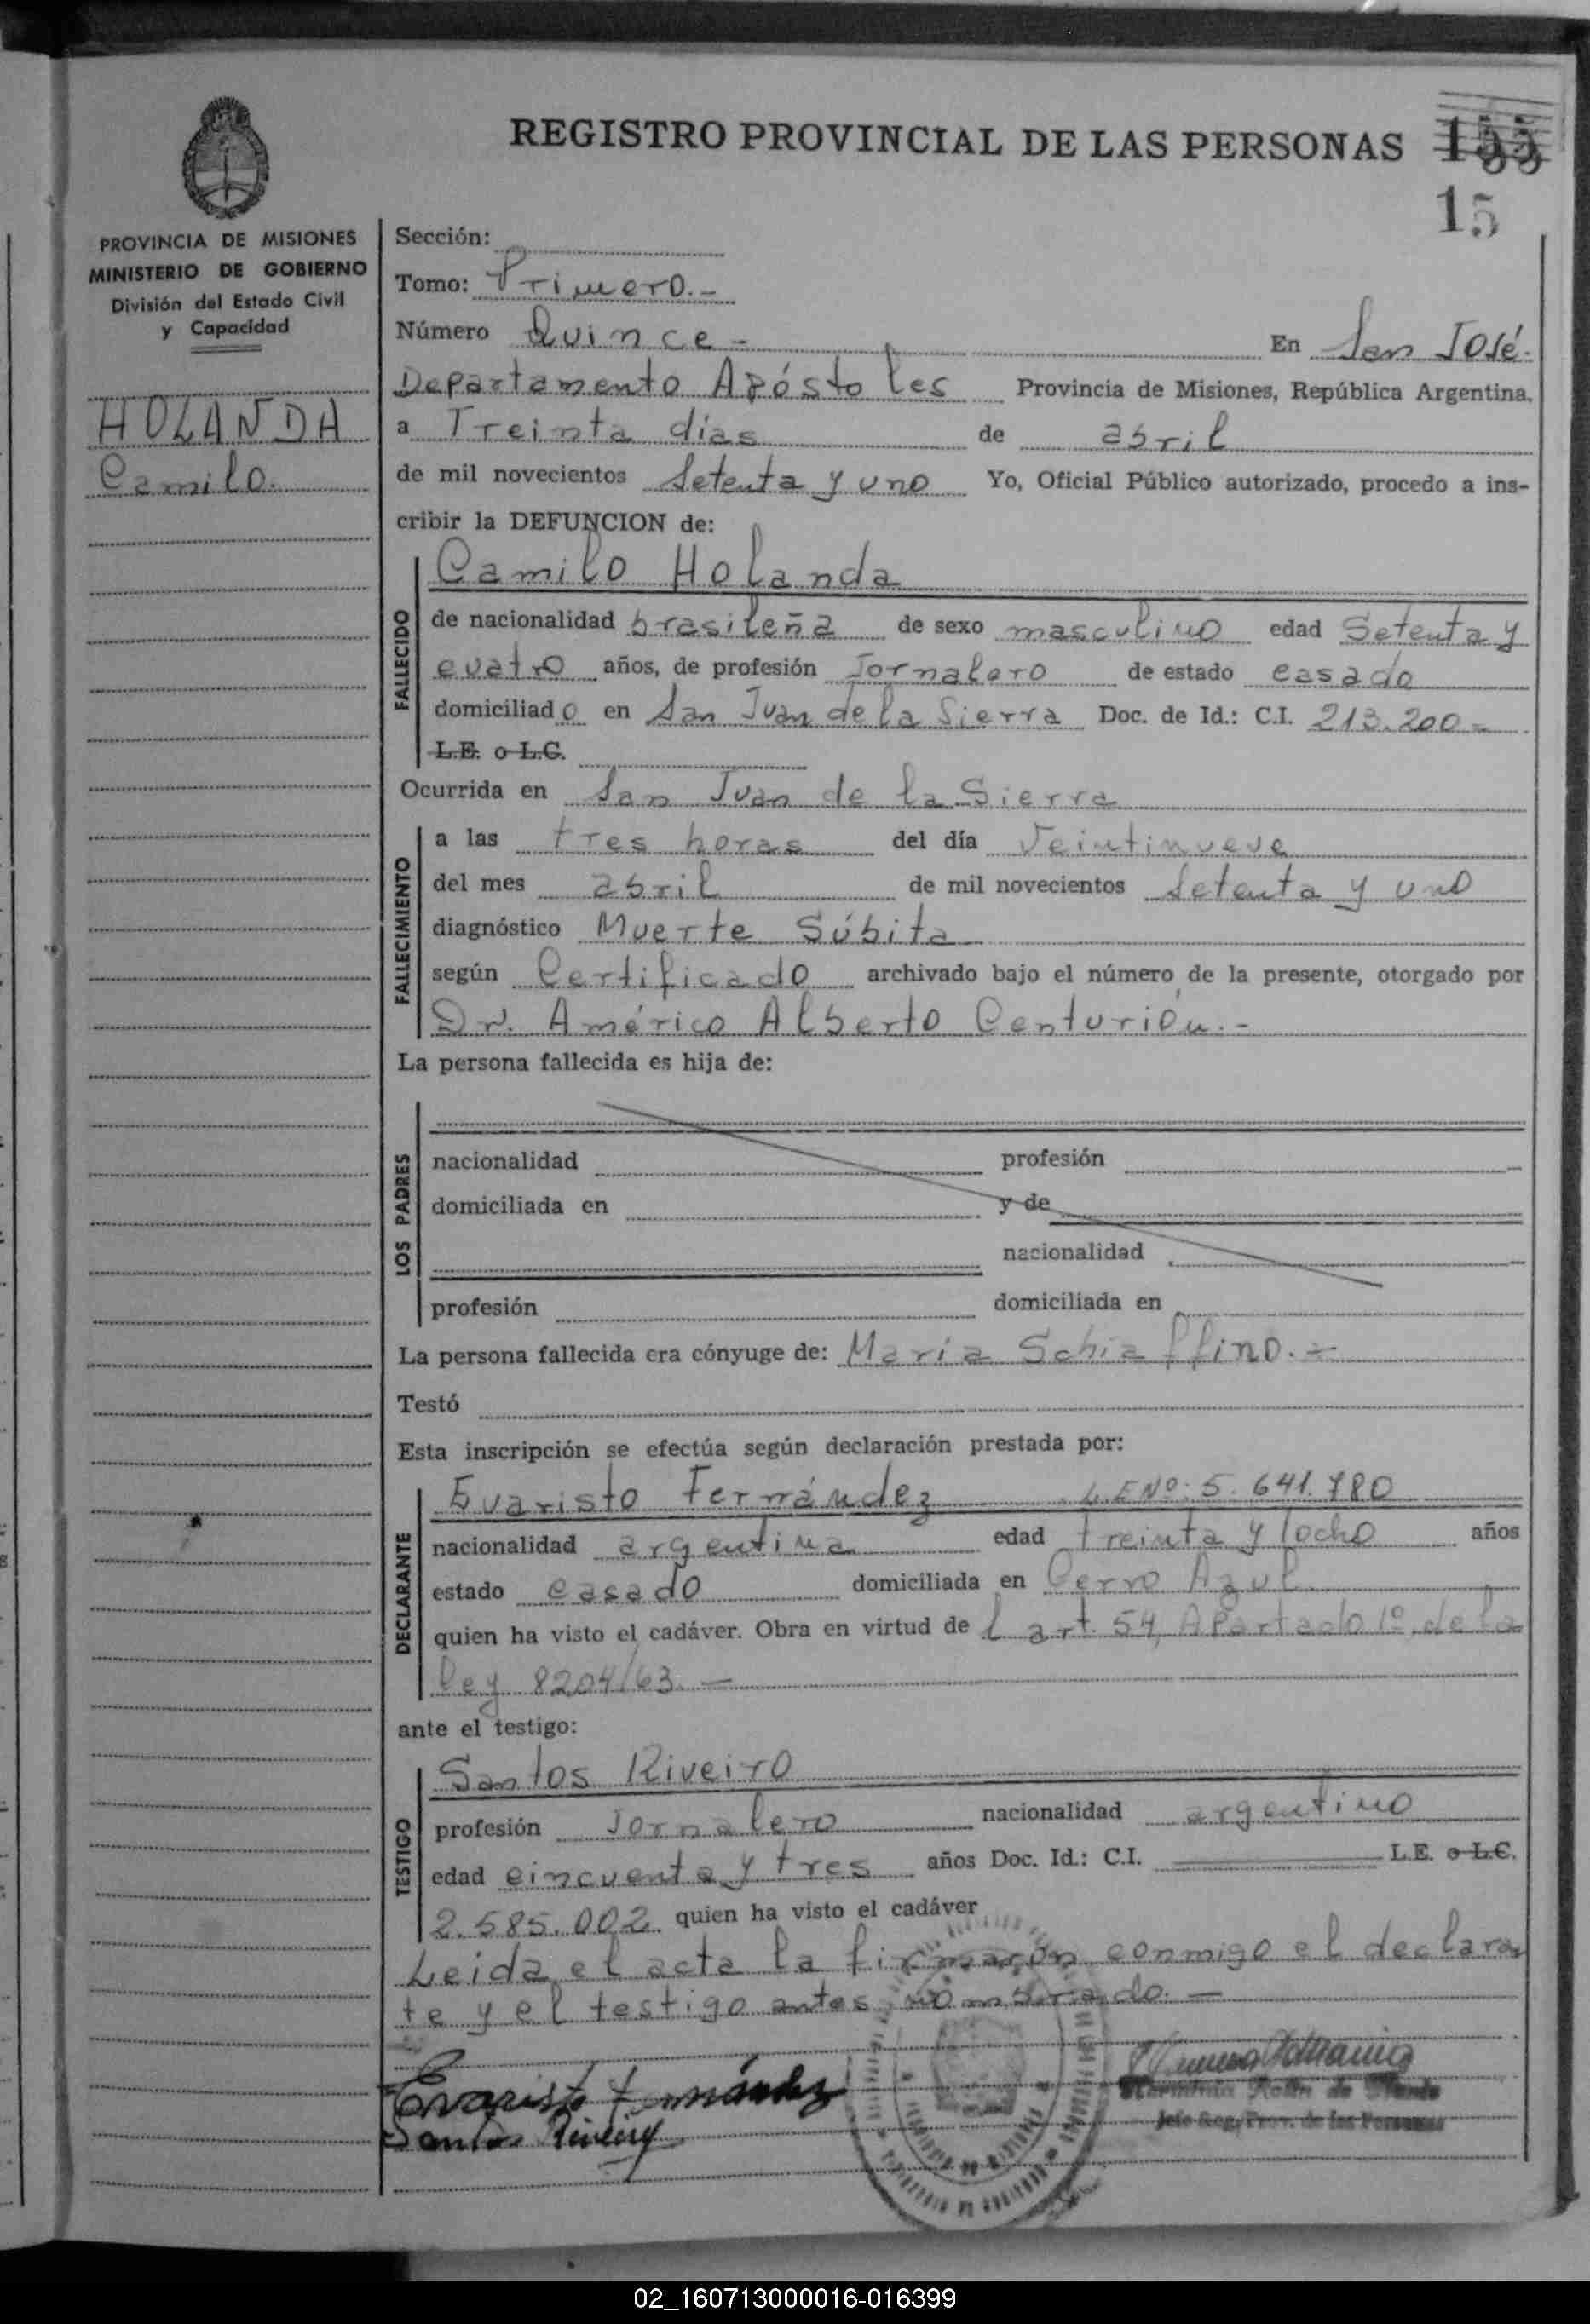 REGISTRO PROVINCIAL DE LAS PERSONAS
15
PROVINCIA DE MISIONES
MINISTERIO DE GOBIERNO
División del Estado Civil
y Capacidad
HOLANDA
Camilo.
Sección:
Tomo: Primero.-
Número Quince - En San José.
Departamento Apóstoles Provincia de Misiones, República Argentina,
a Treinta días de abril
de mil novecientos Setenta y uno Yo, Oficial Público autorizado, procedo a ins-
cribir la DEFUNCION de:
FALLECIDO
Camilo Holanda
de nacionalidad brasileña de sexo masculino edad Setenta y
cuatro años, de profesión Jornalero de estado casado
domiciliado en San Juan de la Sierra Doc. de Id.: C.I. 213.200-
L.E. o L.C.
Ocurrida en San Juan de la Sierra
FALLECIMIENTO
a las tres horas del día Veintinueve
del mes abril de mil novecientos Setenta y uno
diagnóstico Muerte Súbita
según Certificado archivado bajo el número de la presente, otorgado por
Dr. Américo Alberto Centurión.-
La persona fallecida es hija de:
LOS PADRES
nacionalidad profesión
domiciliada en y de
nacionalidad
profesión domiciliada en
La persona fallecida era cónyuge de: María Schiaffino.-
Testó
Esta inscripción se efectúa según declaración prestada por:
DECLARANTE
Evaristo Fernández L.E Nº: 5.641.780
nacionalidad argentina edad treinta y ocho años
estado casado domiciliada en Cerro Azul
quien ha visto el cadáver. Obra en virtud de l art. 54, Apartado 1º de la
ley 8204/63.-
ante el testigo:
TESTIGO
Santos Riveiro
profesión Jornalero nacionalidad argentino
edad cincuenta y tres años Doc. Id.: C.I. L.E. o L.C.
2.585.002 quien ha visto el cadáver
Leida el acta la firmaron conmigo el declaran
te y el testigo antes nombrado.-
Evaristo Fernández
Santos Riveiro
Jefe Reg. Prov. de las Personas
02_160713000016-016399